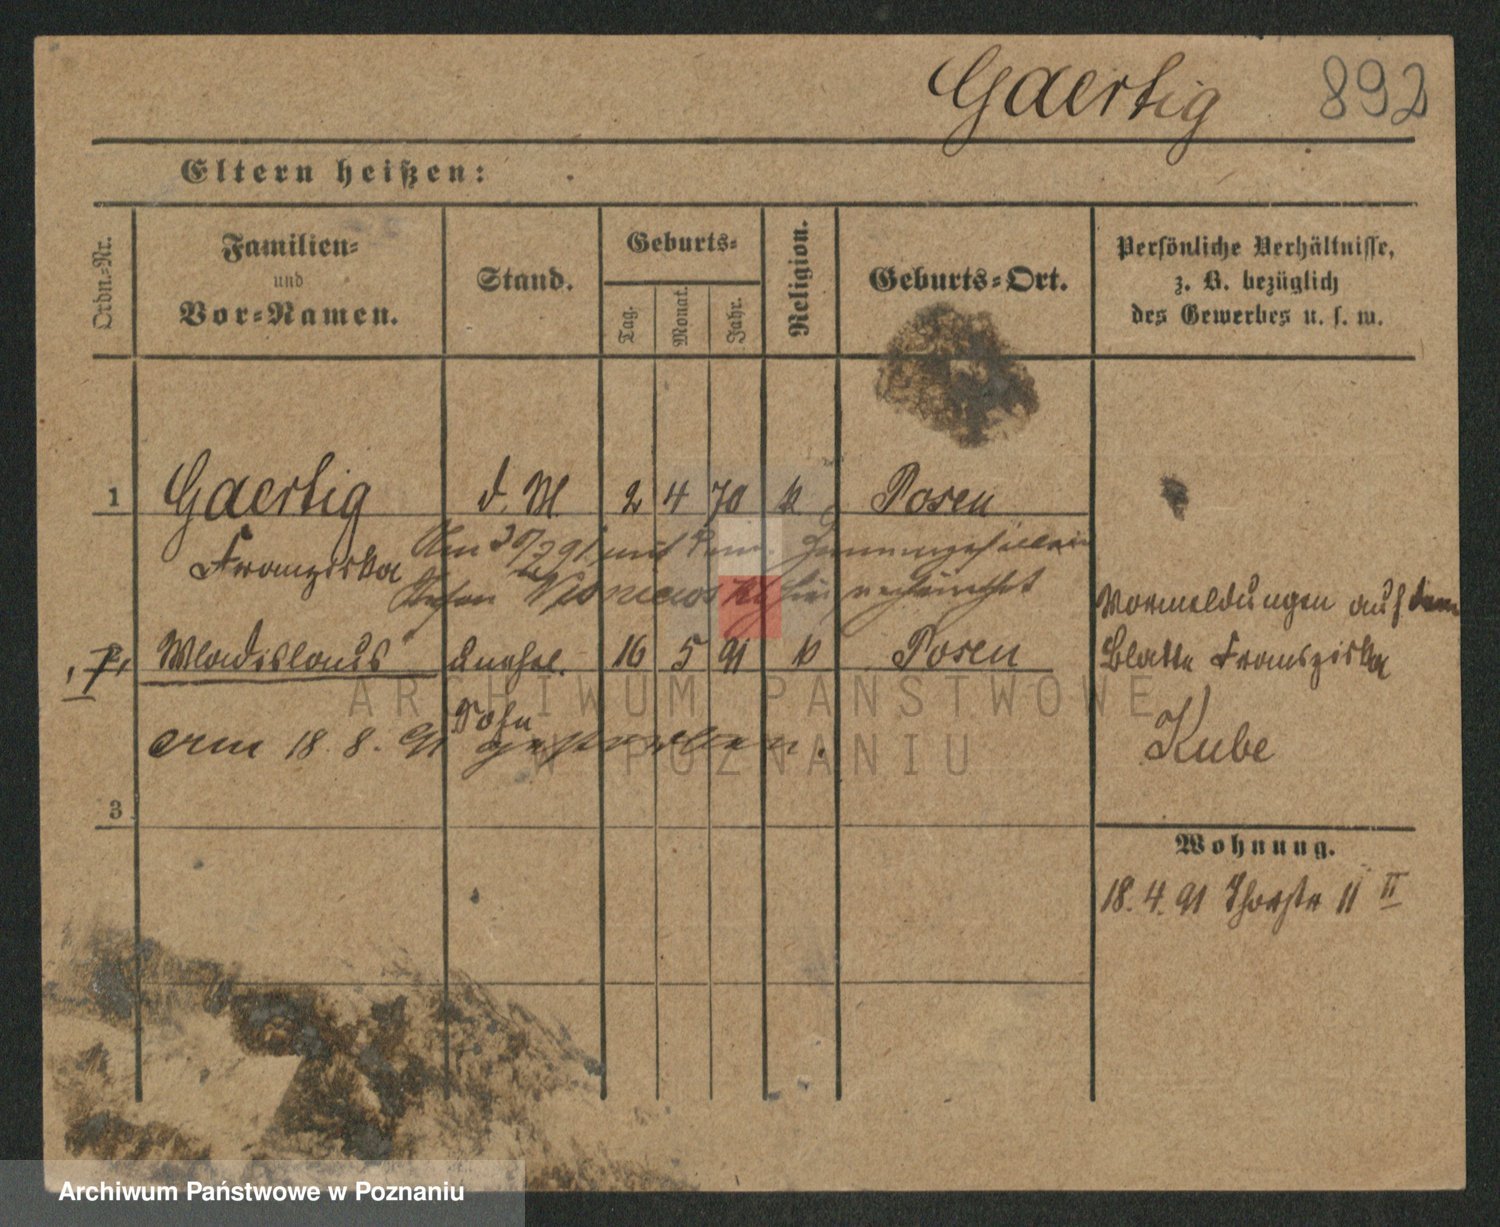 Gaertig 892
Eltern heißen:
Ordn.-Nr.
Familien-
und
Vor-Namen.
Stand.
Geburts-
Tag.
Monat.
Jahr.
Religion.
Geburts-Ort.
Persönliche Verhältnisse,
z. B. bezüglich
des Gewerbes u. s. w.
1 Gaertig d. M. 2 4 70 k Posen
Franziska
Am 30/7 91 mit dem
hier
Wladislaus unehel. 16 5 91 k Posen
Sohn
am 18. 8. 91 gestorben.
3
Vormeldungen auf dem
Blatte Franziska
Kube
Wohnung.
18. 4. 91 Thorstr 11 II
ARCHIWUM PAŃSTWOWE
W POZNANIU
Archiwum Państwowe w Poznaniu